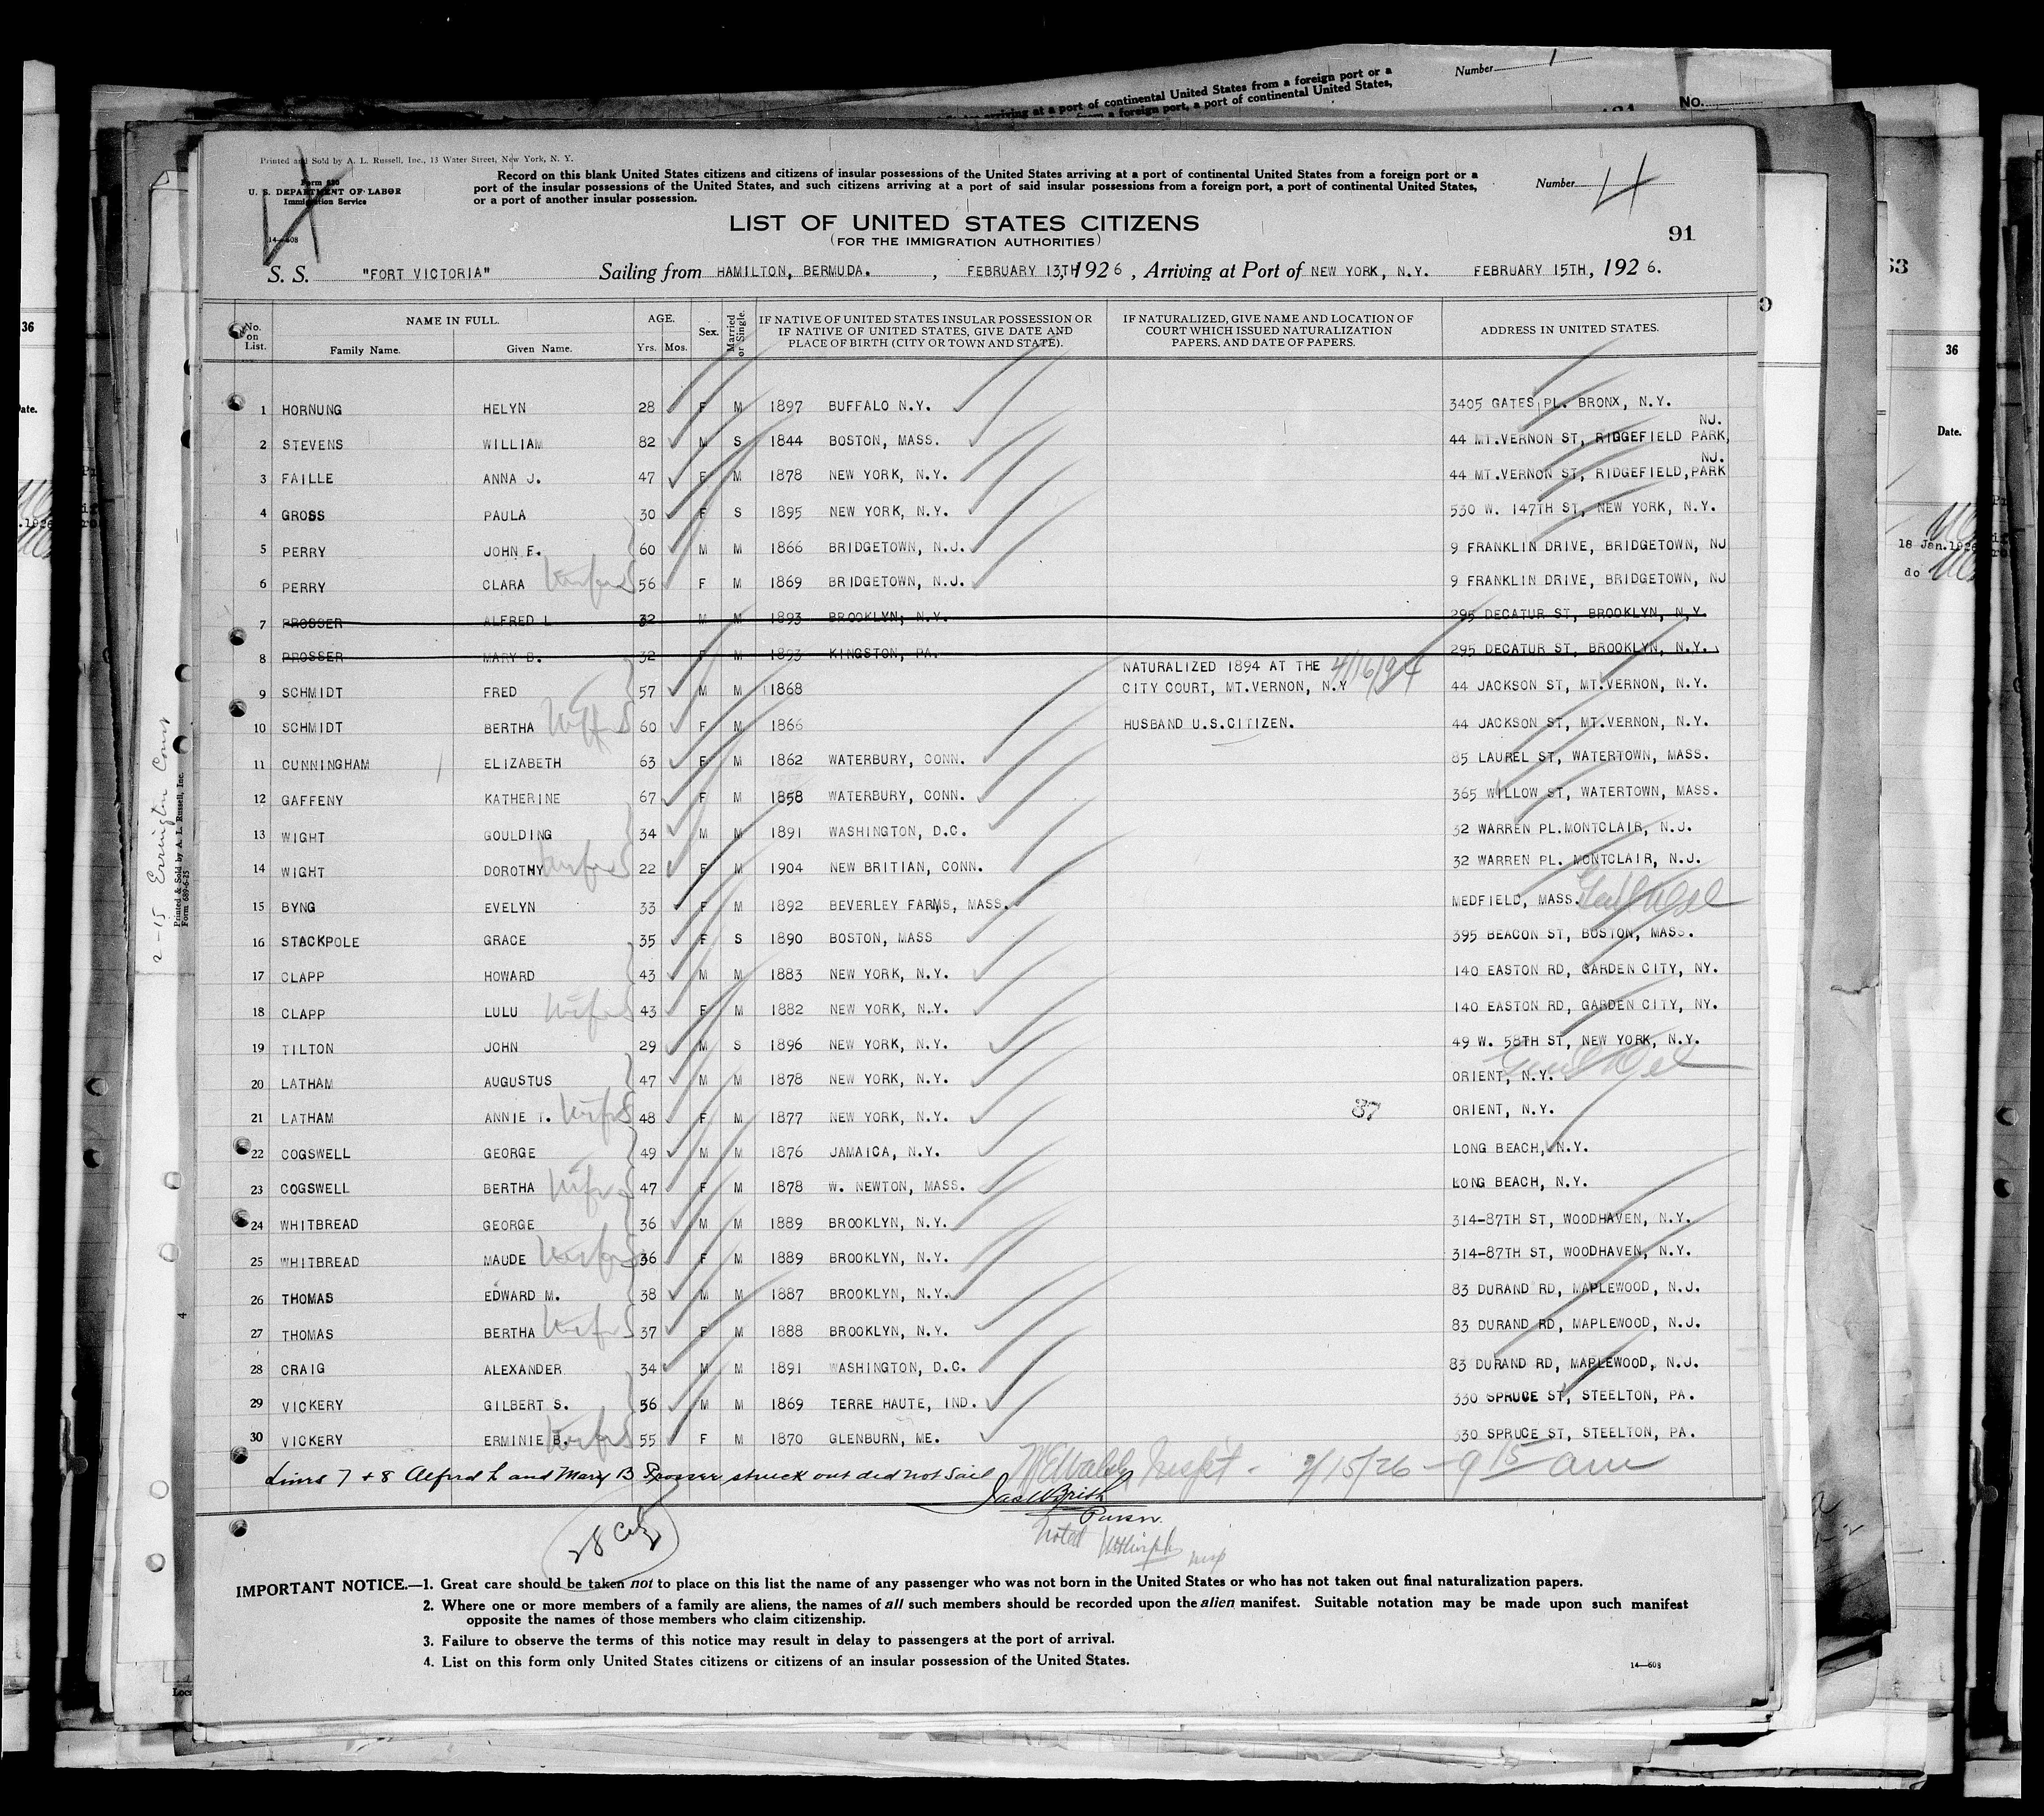 Number 1
continental United States from a foreign port or a
from a foreign port, a port of continental United States,
No.
Printed and Sold by A. L. Russell, Inc., 13 Water Street, New York, N. Y.
Form 630
U. S. DEPARTMENT OF LABOR
Immigration Service
14—608
Record on this blank United States citizens and citizens of insular possessions of the United States arriving at a port of continental United States from a foreign port or a
port of the insular possessions of the United States, and such citizens arriving at a port of said insular possessions from a foreign port, a port of continental United States,
or a port of another insular possession.
Number 4
LIST OF UNITED STATES CITIZENS
(FOR THE IMMIGRATION AUTHORITIES)
91
S. S. "FORT VICTORIA" Sailing from HAMILTON, BERMUDA. , FEBRUARY 13TH, 1926, Arriving at Port of NEW YORK, N.Y. FEBRUARY 15TH, 1926.
No. on List. NAME IN FULL. Family Name. Given Name. AGE. Yrs. Mos. Sex. Married or Single. IF NATIVE OF UNITED STATES INSULAR POSSESSION OR IF NATIVE OF UNITED STATES, GIVE DATE AND PLACE OF BIRTH (CITY OR TOWN AND STATE). IF NATURALIZED, GIVE NAME AND LOCATION OF COURT WHICH ISSUED NATURALIZATION PAPERS, AND DATE OF PAPERS. ADDRESS IN UNITED STATES.
1 HORNUNG HELYN 28 F M 1897 BUFFALO N.Y. 3405 GATES PL. BRONX, N.Y.
2 STEVENS WILLIAM 82 M S 1844 BOSTON, MASS. 44 MT.VERNON ST, RIDGEFIELD PARK, NJ.
3 FAILLE ANNA J. 47 F M 1878 NEW YORK, N.Y. 44 MT.VERNON ST, RIDGEFIELD,PARK NJ.
4 GROSS PAULA 30 F S 1895 NEW YORK, N.Y. 530 W. 147TH ST, NEW YORK, N.Y.
5 PERRY JOHN F. 60 M M 1866 BRIDGETOWN, N.J. 9 FRANKLIN DRIVE, BRIDGETOWN, NJ
6 PERRY CLARA wife 56 F M 1869 BRIDGETOWN, N.J. 9 FRANKLIN DRIVE, BRIDGETOWN, NJ
7 PROSSER ALFRED L 32 M M 1893 BROOKLYN, N.Y. 295 DECATUR ST, BROOKLYN, N.Y.
8 PROSSER MARY B. 32 F M 1893 KINGSTON, PA. 295 DECATUR ST, BROOKLYN, N.Y.
9 SCHMIDT FRED 57 M M 1868 NATURALIZED 1894 AT THE CITY COURT, MT.VERNON, N.Y 4/16/94 44 JACKSON ST, MT.VERNON, N.Y.
10 SCHMIDT BERTHA wife 60 F M 1866 HUSBAND U.S.CITIZEN. 44 JACKSON ST, MT.VERNON, N.Y.
11 CUNNINGHAM ELIZABETH 63 F M 1862 WATERBURY, CONN. 85 LAUREL ST, WATERTOWN, MASS.
12 GAFFENY KATHERINE 67 F M 1858 WATERBURY, CONN. 365 WILLOW ST, WATERTOWN, MASS.
13 WIGHT GOULDING 34 M M 1891 WASHINGTON, D.C. 32 WARREN PL.MONTCLAIR, N.J.
14 WIGHT DOROTHY wife 22 F M 1904 NEW BRITIAN, CONN. 32 WARREN PL. MONTCLAIR, N.J.
15 BYNG EVELYN 33 F M 1892 BEVERLEY FARMS, MASS. MEDFIELD, MASS.
16 STACKPOLE GRACE 35 F S 1890 BOSTON, MASS 395 BEACON ST, BOSTON, MASS.
17 CLAPP HOWARD 43 M M 1883 NEW YORK, N.Y. 140 EASTON RD, GARDEN CITY, NY.
18 CLAPP LULU wife 43 F M 1882 NEW YORK, N.Y. 140 EASTON RD, GARDEN CITY, NY.
19 TILTON JOHN 29 M S 1896 NEW YORK, N.Y. 49 W. 58TH ST, NEW YORK, N.Y.
20 LATHAM AUGUSTUS 47 M M 1878 NEW YORK, N.Y. ORIENT, N.Y.
21 LATHAM ANNIE T. wife 48 F M 1877 NEW YORK, N.Y. 37 ORIENT, N.Y.
22 COGSWELL GEORGE 49 M M 1876 JAMAICA, N.Y. LONG BEACH, N.Y.
23 COGSWELL BERTHA wife 47 F M 1878 W. NEWTON, MASS. LONG BEACH, N.Y.
24 WHITBREAD GEORGE 36 M M 1889 BROOKLYN, N.Y. 314-87TH ST, WOODHAVEN, N.Y.
25 WHITBREAD MAUDE wife 36 F M 1889 BROOKLYN, N.Y. 314-87TH ST, WOODHAVEN, N.Y.
26 THOMAS EDWARD M. 38 M M 1887 BROOKLYN, N.Y. 83 DURAND RD, MAPLEWOOD, N.J.
27 THOMAS BERTHA wife 37 F M 1888 BROOKLYN, N.Y. 83 DURAND RD, MAPLEWOOD, N.J.
28 CRAIG ALEXANDER 34 M M 1891 WASHINGTON, D.C. 83 DURAND RD, MAPLEWOOD, N.J.
29 VICKERY GILBERT S. 56 M M 1869 TERRE HAUTE, IND. 330 SPRUCE ST, STEELTON, PA.
30 VICKERY ERMINIE B. wife 55 F M 1870 GLENBURN, ME. 330 SPRUCE ST, STEELTON, PA.
Lines 7 + 8 Alfred L and Mary B Prosser struck out did not sail 2/15/26 - 9 15 am
Purser
28 Cit
noted
IMPORTANT NOTICE.—1. Great care should be taken not to place on this list the name of any passenger who was not born in the United States or who has not taken out final naturalization papers.
2. Where one or more members of a family are aliens, the names of all such members should be recorded upon the alien manifest. Suitable notation may be made upon such manifest
opposite the names of those members who claim citizenship.
3. Failure to observe the terms of this notice may result in delay to passengers at the port of arrival.
4. List on this form only United States citizens or citizens of an insular possession of the United States.
14—608
2-15 Errington Court
Printed & Sold by A. L. Russell, Inc.
Form 689-6-25
4
36
Date.
63
36
Date.
18 Jan.1926
do